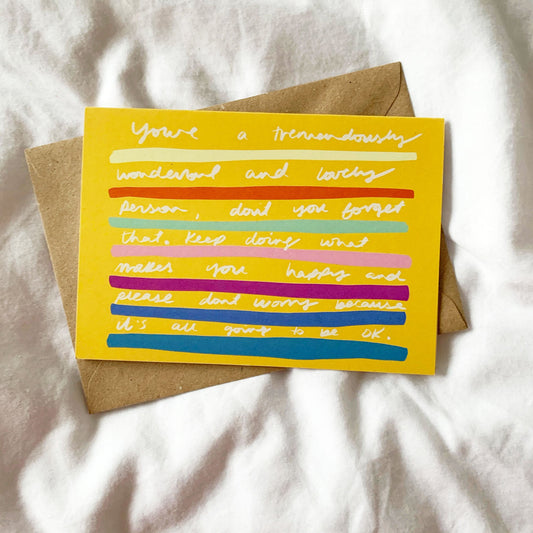 You're a tremendously
wonderful and lovely
person, don't you forget
that. Keep doing what
makes you happy and
please don't worry because
it's all going to be OK.